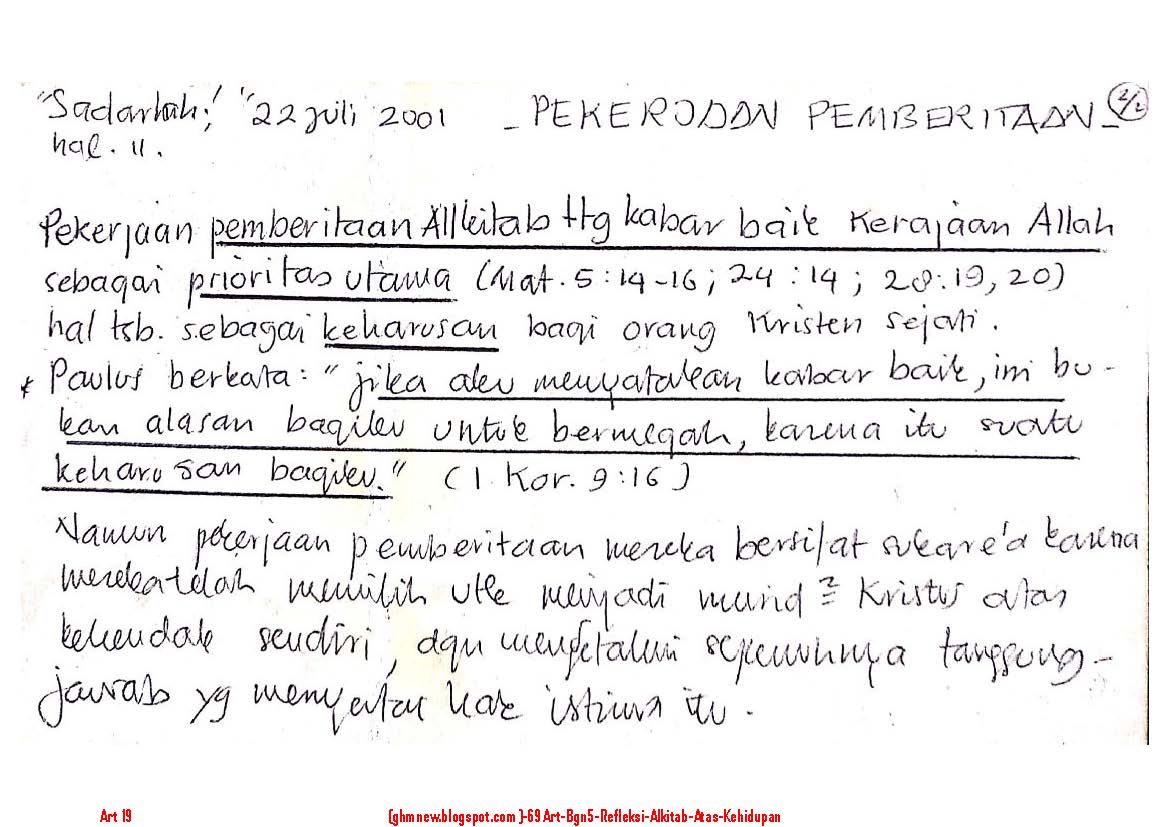 "Sadarlah!" 22 Juli 2001 - PEKERJAAN PEMBERITAAN - 2/2
hal. 11.
Pekerjaan pemberitaan Allkitab ttg kabar baik Kerajaan Allah
sebagai prioritas utama (Mat. 5:14-16; 24:14; 28:19,20)
hal tsb. sebagai keharusan bagi orang Kristen sejati.
* Paulus berkata: "jika aku menyatakan kabar baik, ini bu-
kan alasan bagiku untuk bermegah, karena itu suatu
keharusan bagiku." (1 Kor. 9:16)
Namun pekerjaan pemberitaan mereka bersifat sukare'a karena
mereka telah memilih utk menjadi murid² Kristus atas
kehendak sendiri, dgn mengetahui sepenuhnya tanggung-
jawab yg menyertai hak istimwa itu.
Art 19 (ghmnew.blogspot.com)-69Art-Bgn5-Refleksi-Alkitab-Atas-Kehidupan